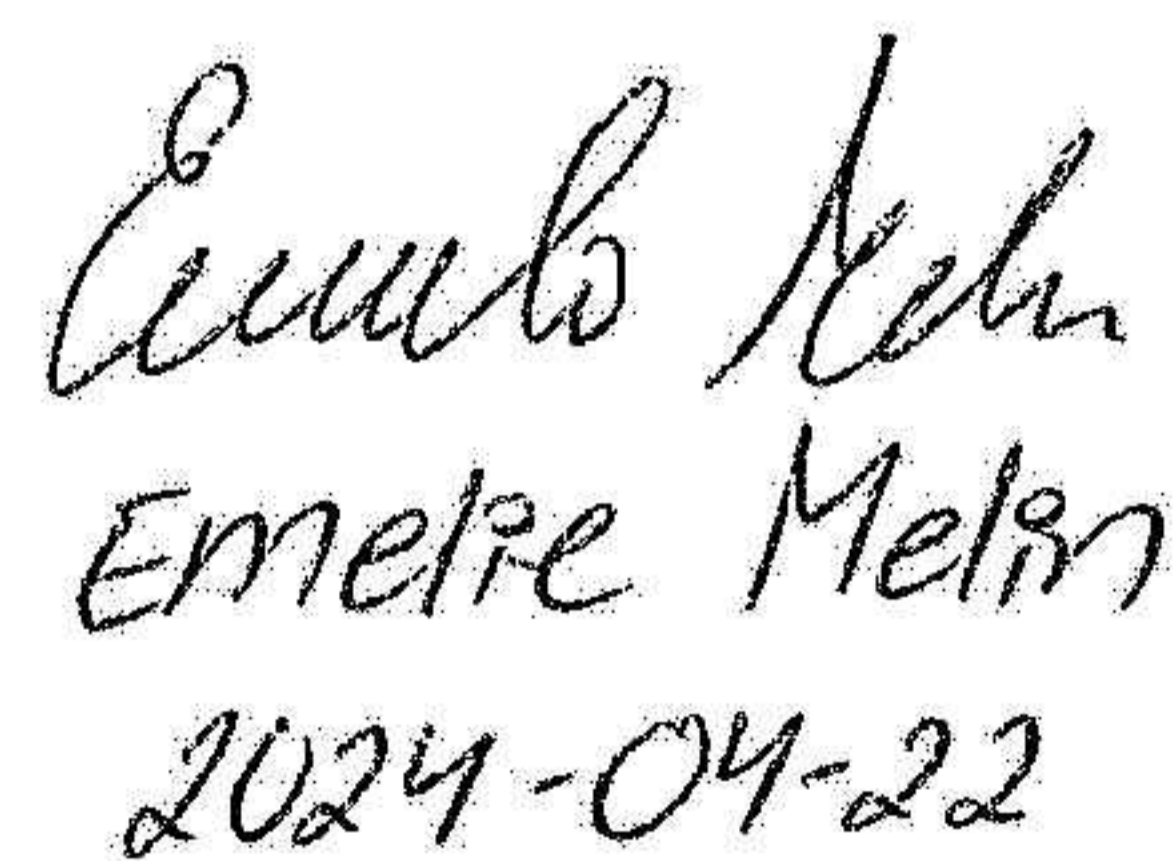 Emelie Melin
Emelie Melin
2024-04-22